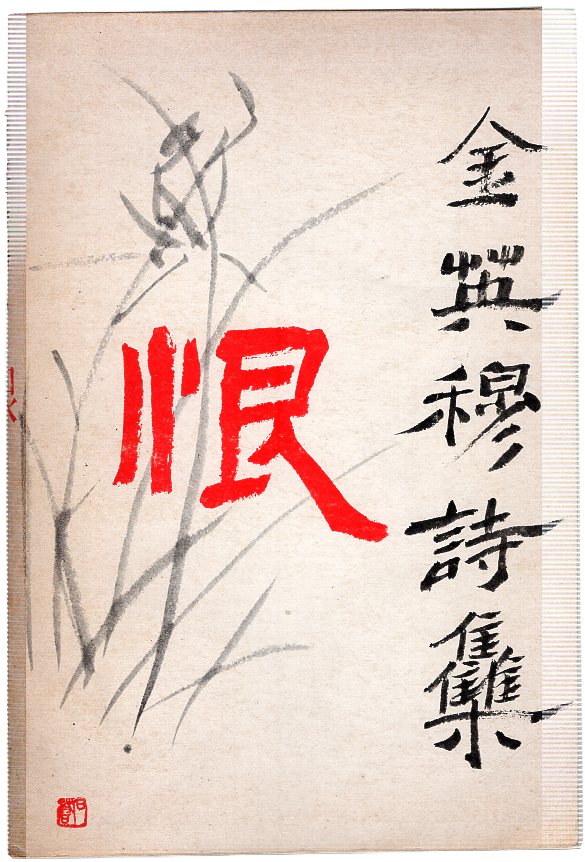 金英穆詩集
恨